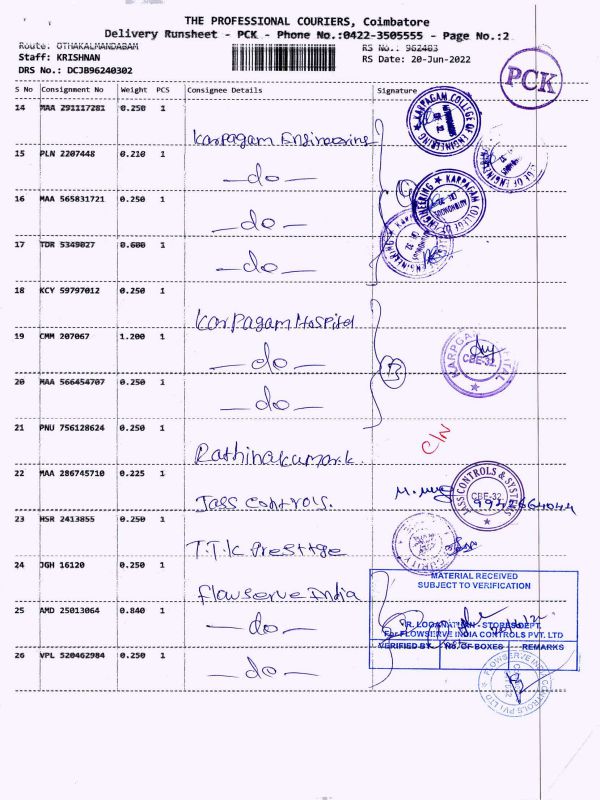 THE PROFESSIONAL COURIERS, Coimbatore
Delivery Runsheet - PCK - Phone No.:0422-3505555 - Page No.:2
Route: OTHAKALMANDABAM RS No.: 962403
Staff: KRISHNAN RS Date: 20-Jun-2022
DRS No.: DCJB96240302
PCK
S No Consignment No Weight PCS Consignee Details Signature
14 MAA 291117281 0.250 1 Karpagam Engineering
KARPAGAM COLLEGE OF ENGINEERING
15 PLN 2207448 0.210 1 —do—
COLLEGE OF ENGINEERING
16 MAA 565831721 0.250 1 —do—
KARPAGAM COLLEGE OF ENGINEERING
AUTONOMOUS
17 TDR 5349027 0.600 1 —do—
18 KCY 59797012 0.250 1 Karpagam Hospital
19 CMM 207067 1.200 1 —do—
KARPAGAM HOSPITAL
CBE-32
20 MAA 566454707 0.250 1 —do—
21 PNU 756128624 0.250 1 Rathinakumar.k.
C/N
22 MAA 286745710 0.225 1 Jass Controls.
JASS CONTROLS & SYSTEMS
CBE-32
23 HSR 2413855 0.250 1 T.T.K Prestige
24 JGH 16120 0.250 1 Flowserve India
MATERIAL RECEIVED
SUBJECT TO VERIFICATION
25 AMD 25013064 0.840 1 —do—
R. LOGANATHAN - STORES DEPT.
For FLOWSERVE INDIA CONTROLS PVT. LTD
VERIFIED BY NO. OF BOXES REMARKS
26 VPL 520462984 0.250 1 —do—
FLOWSERVE INDIA CONTROLS PVT LTD